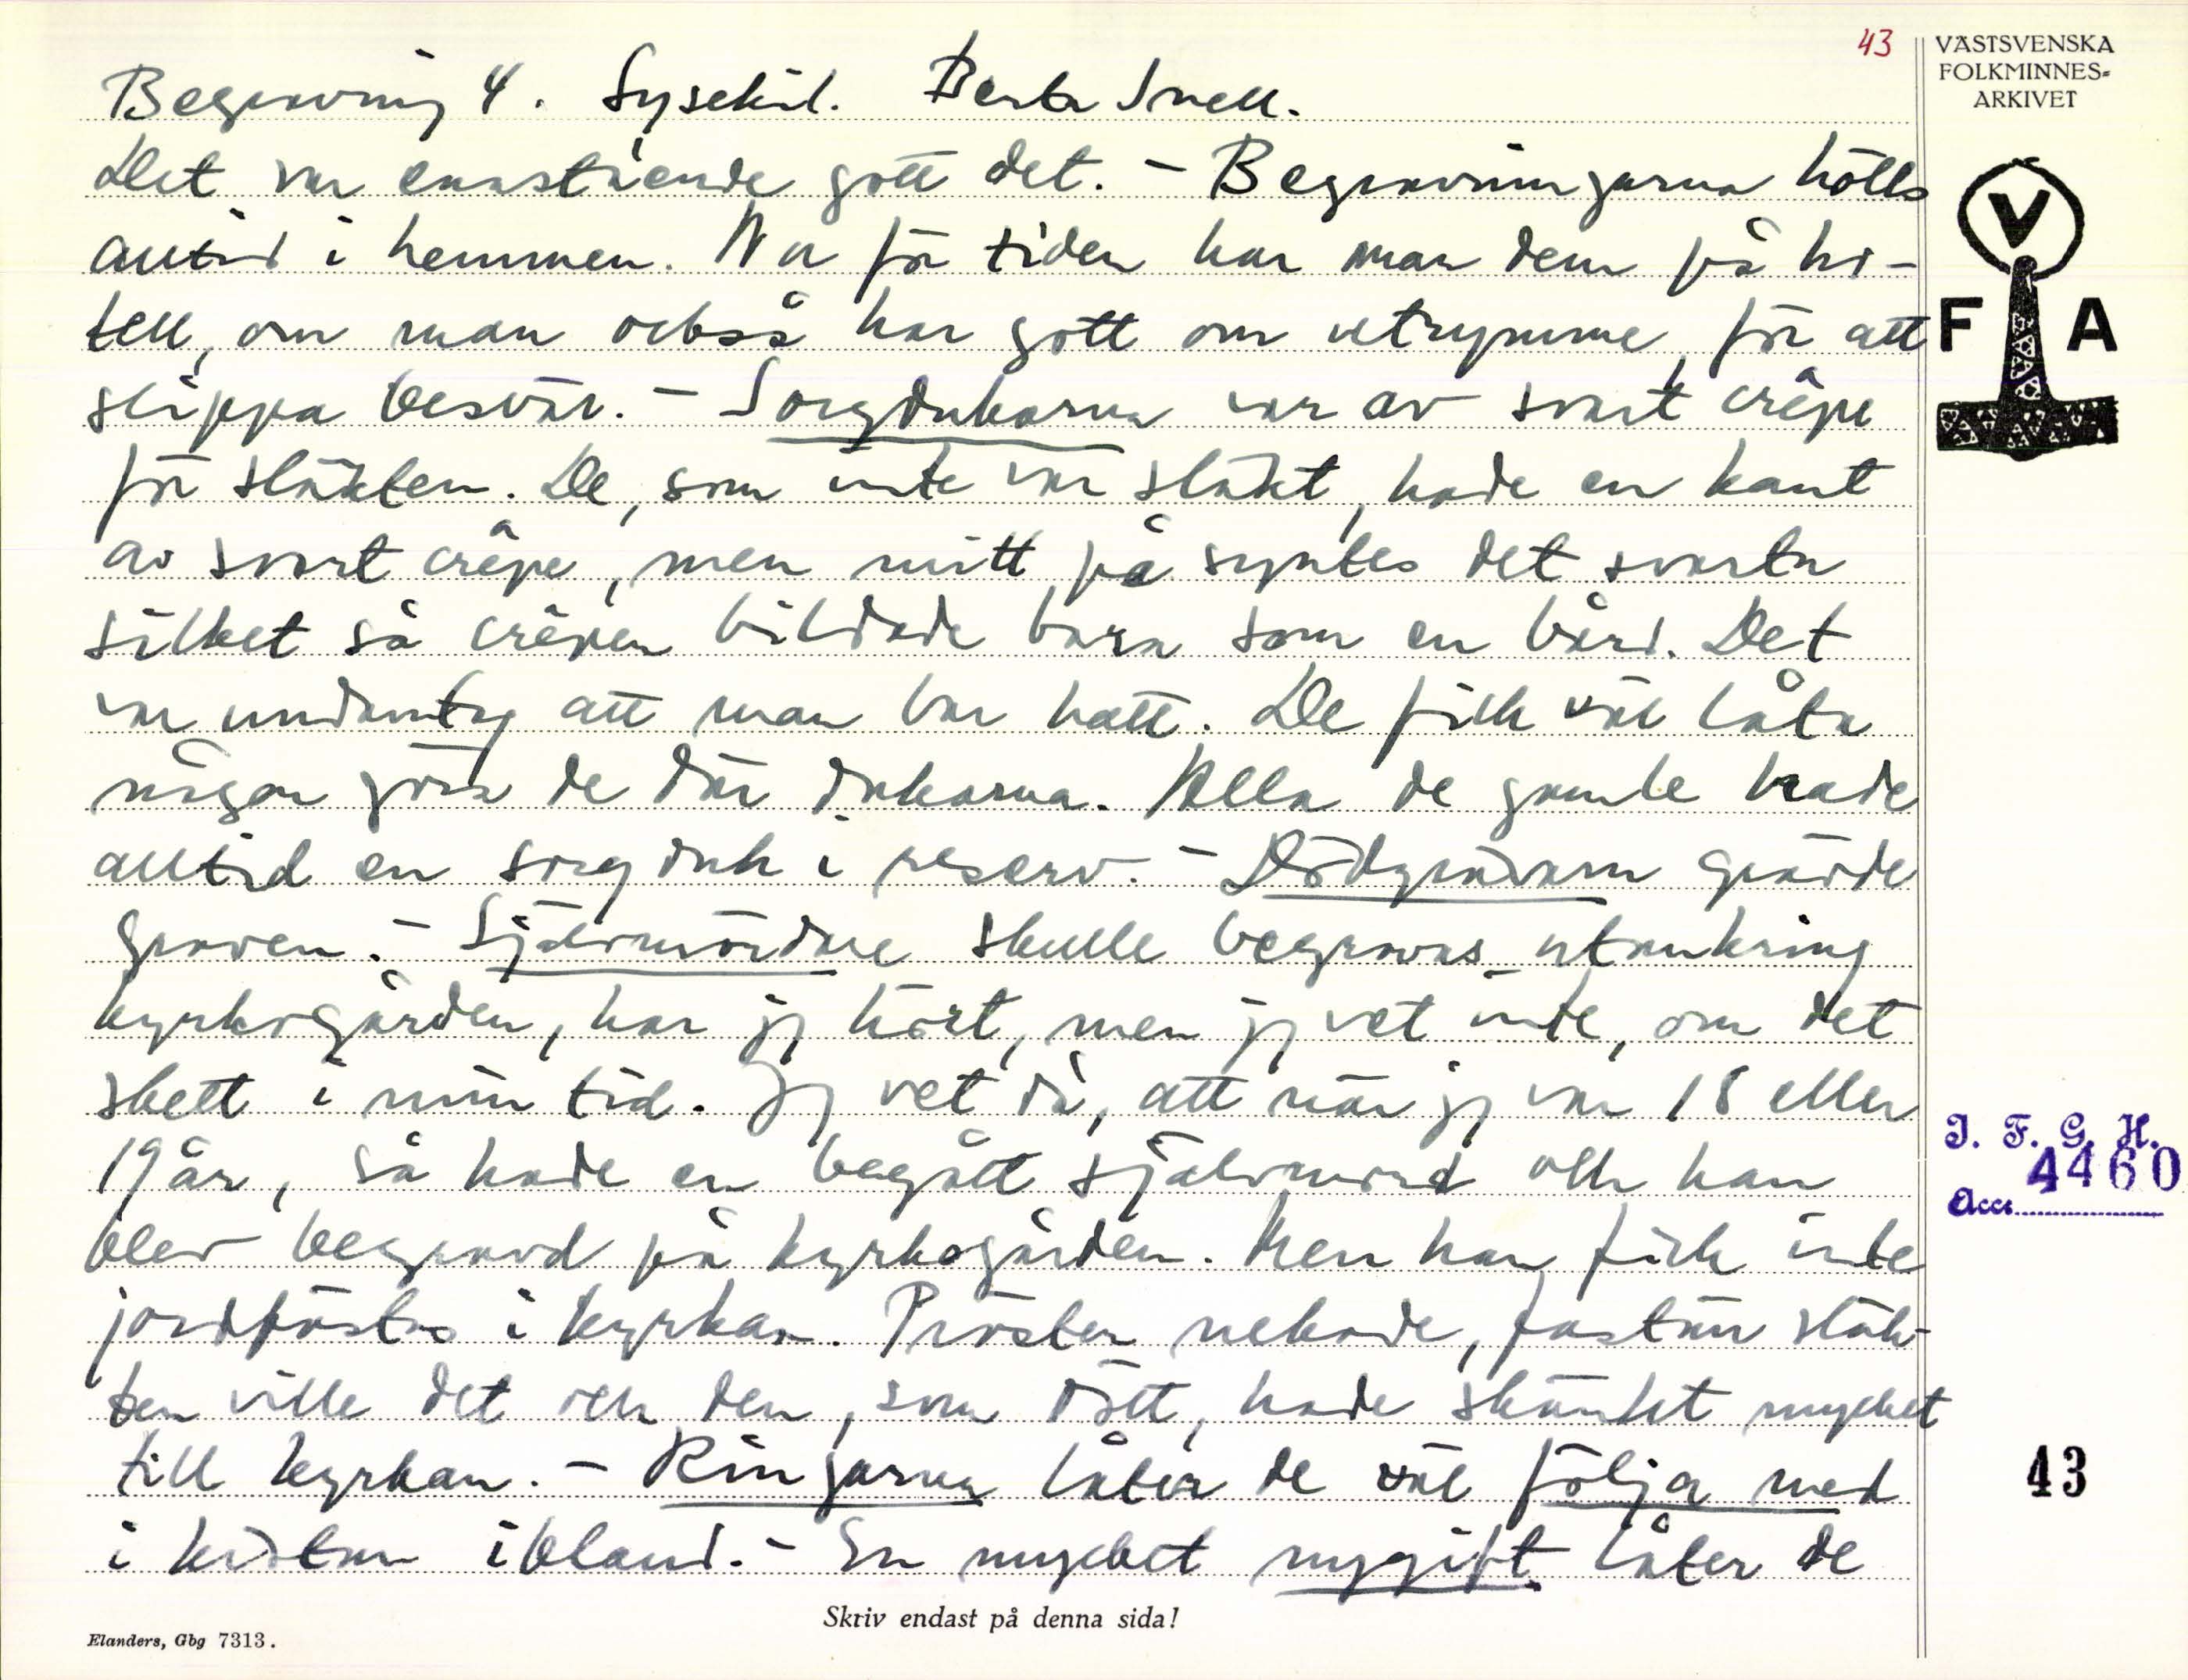 43
VÄSTSVENSKA
FOLKMINNES-
ARKIVET
V
F A
Begravning 4. Lysekil. Berta Snell.
Det var enastående gott det. - Begravningarna hölls
alltid i hemmen. Nu för tiden har man dem på ho-
tell, om man också har gott om utrymme, för att
slippa besvär. - Sorgdukarna var av svart crêpe
för släkten. De, som inte var släkt, hade en kant
av svart crêpe, men mitt på syntes det svarta
silket så crêpen bildade bara som en bård. Det
var undantag att man bar hatt. De fick väl låta
någon göra de där dukarna. Alla de gamle hade
alltid en sorgduk i reserv. - Dödgrävarn grävde
graven. - Självmördare skulle begravas utankring
kyrkogården, har jg hört, men jg vet inte, om det
skett i min tid. Jg vet då, att när jg var 18 eller
19 år, så hade en begått självmord och han
blev begravd på kyrkogården. Men han fick inte
jordfästas i kyrkan. Prästen nekade, fastän släk-
ten ville det och den, som dött, hade skänkt mycket
till kyrkan. - Ringarna låter de väl följa med
i kistan ibland. - En mycket nygift låter de
I. F. G. H.
4460
Acc.
43
Skriv endast på denna sida!
Elanders, Gbg 7313.